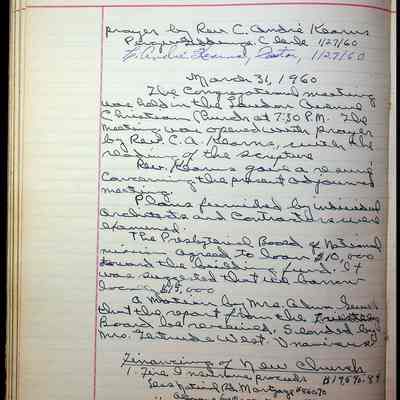 prayer by Rev. C. André Kearns
Clerk 1/27/60
C. André Kearns, Pastor, 1/27/60
March 31, 1960
The Congregational meeting
was held in the Avenue
Christian Church at 7:30 P.M. The
meeting was opened with prayer
by Rev. C. A. Kearns, with the
reading of the scripture
Rev. Kearns gave a
concerning the present adjourned
meeting.
Plans furnished by individual
architects and contractors were
examined.
The Presbyterial Board of National
mission agreed to loan $10,000
toward the building fund. It
was suggested that we borrow
$15,000
A motion by Mrs.
that the report from the Trustee
Board be received. Seconded by
Mrs. Gertrude West. Unanimous
Financing of New Church
1. Fire Insurance proceeds
Less National Bd. Mortgage